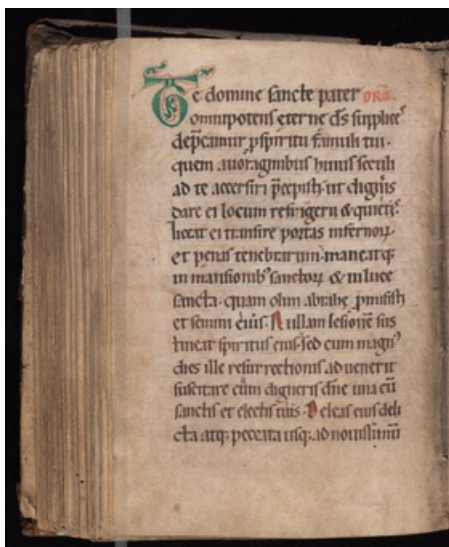 Te domine sancte pater orō.
omnipotens eterne ds̄ supplicit᷑
dep̄camur p spiritu famuli tui·
quem a uoraginibus huius seculi
ad te accersiri p̄cepisti· ut digneris
dare ei locum refrigerii & quietis·
liceat ei transire portas infernoꝝ
et penas tenebrarum· maneatq;
in mansionib' sanctoꝝ & in luce
sancta· quam olim abrahe p̄misisti
et semini eius· Nullam lesionē sus
tineat spiritus eius· sed cum magn'
dies ille resurrectionis aduenerit
suscitare eum digneris dn̄e una cū
sanctis et electis tuis· Deleas eius deli
cta atq; peccata usq; ad nouissimū